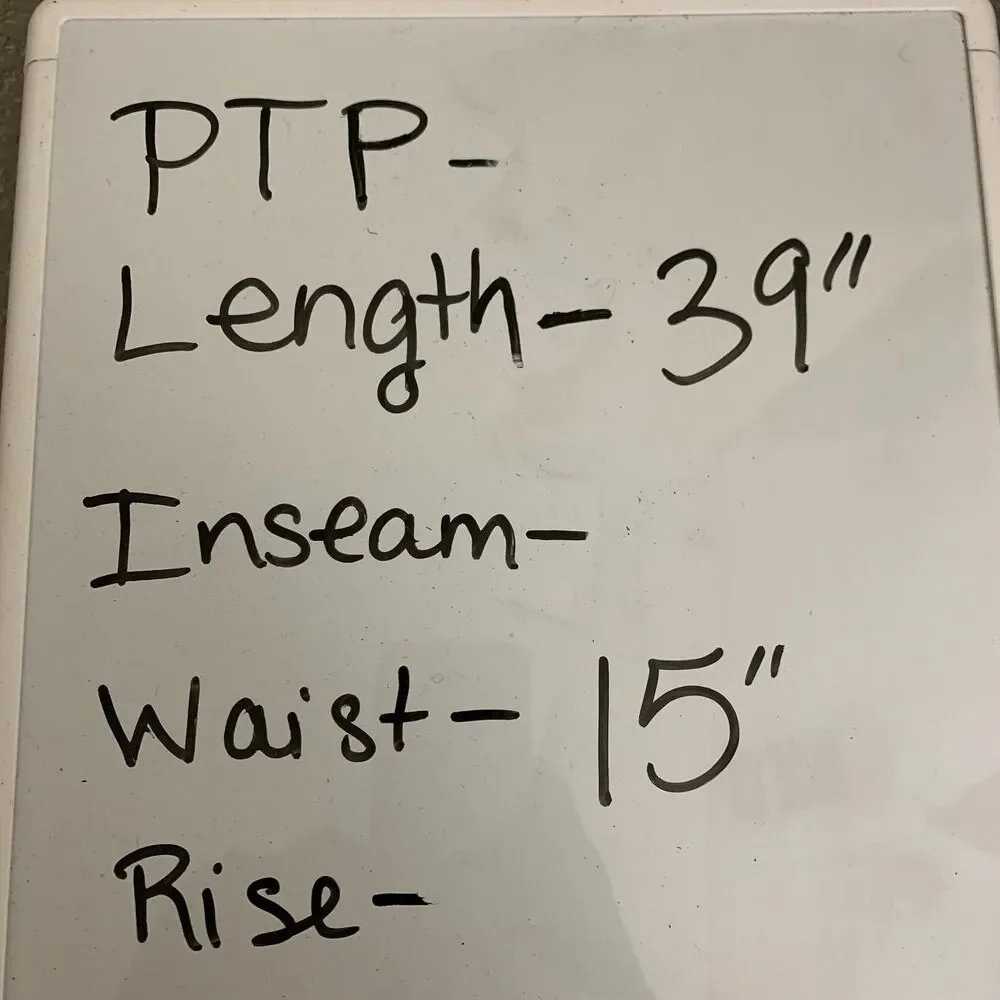 PTP-
Length- 39"
Inseam-
Waist- 15"
Rise-